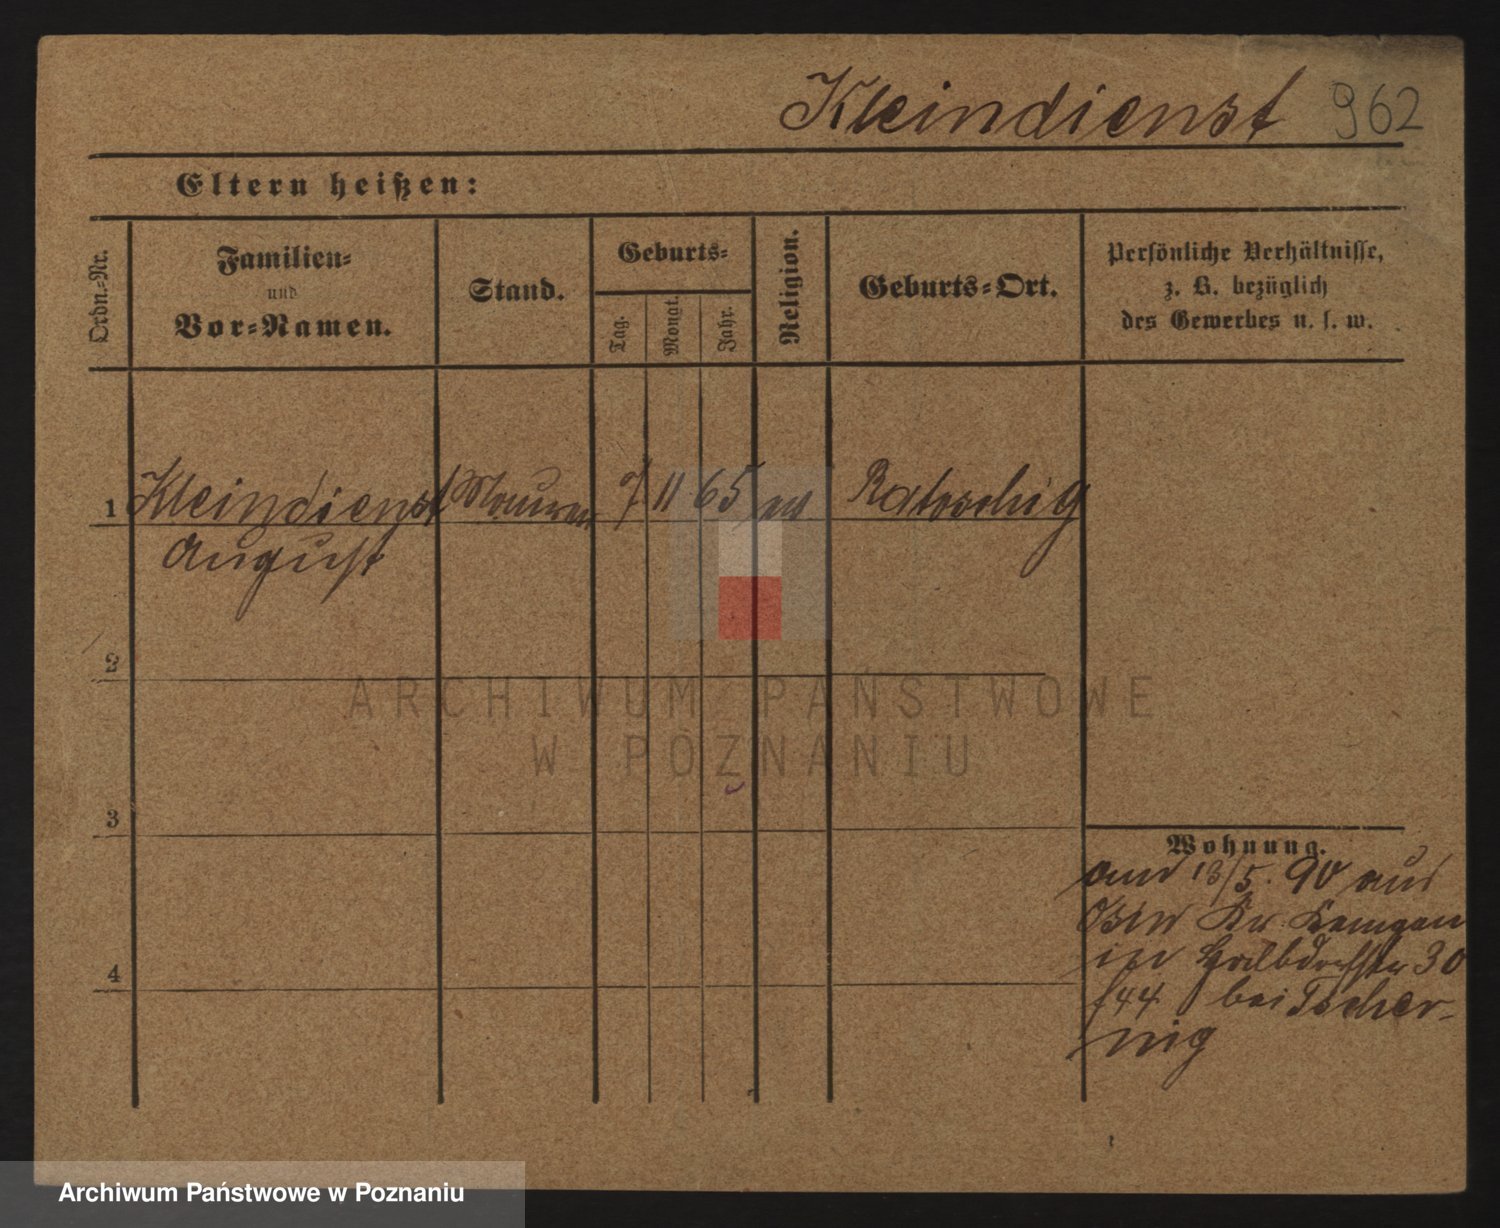 Kleindienst 962
Eltern heißen:
Ordn.-Nr.
Familien-
und
Vor-Namen.
Stand.
Geburts-
Tag.
Monat.
Jahr.
Religion.
Geburts-Ort.
Persönliche Verhältnisse,
z. B. bezüglich
des Gewerbes u. s. w.
1 Kleindienst Maurer 7 11 65 ev Ratoschig
August
2
ARCHIWUM PAŃSTWOWE
W POZNANIU
3
Wohnung.
am 13/5. 90 aus
Kr.
in Halbdorfstr 30
bei Tscher-
nig
4
Archiwum Państwowe w Poznaniu